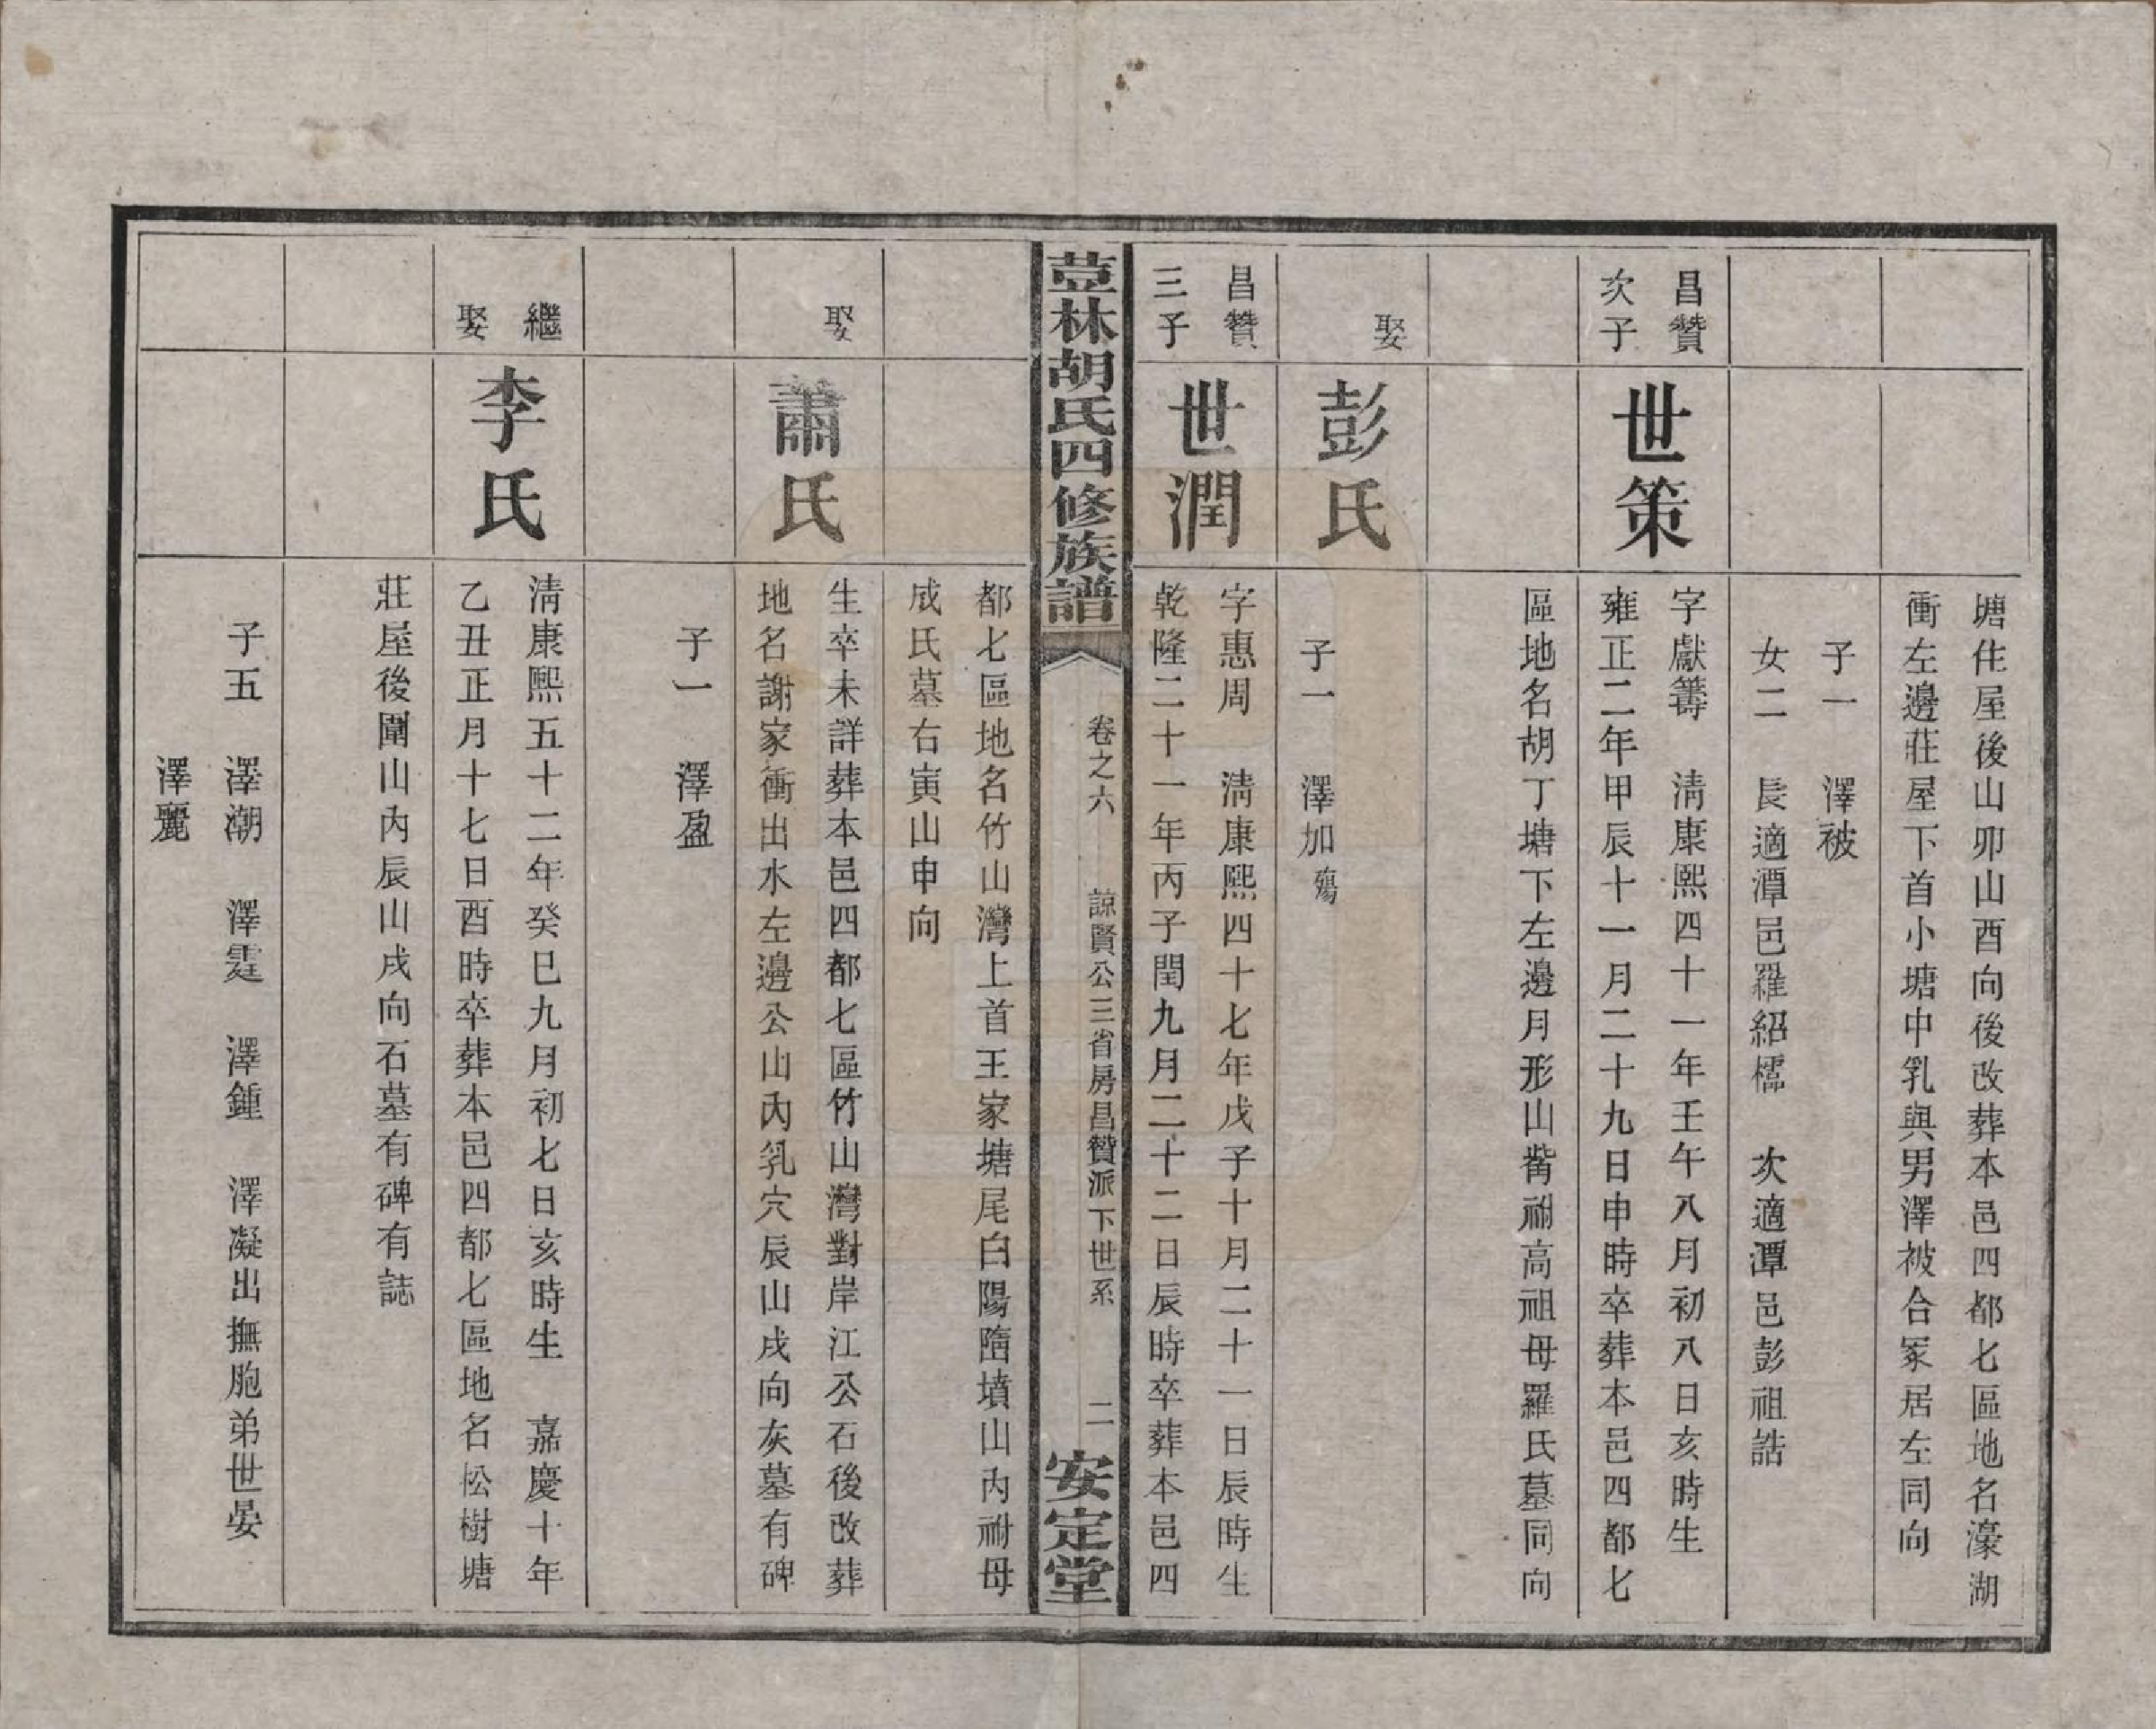 塘住屋後山卯山酉向後改葬本邑四都七區地名濠湖
衝左邊莊屋下首小塘中乳與男澤被合冢居左同向
子一 澤被
女二 長適潭邑羅紹檽 次適潭邑彭祖誥
昌贊
次子
世策
字獻籌 清康熙四十一年壬午八月初八日亥時生
雍正二年甲辰十一月二十九日申時卒葬本邑四都七
區地名胡丁塘下左邊月形山觜祔高祖母羅氏墓同向
娶
彭氏
子一 澤加殤
昌贊
三子
世潤
字惠周 清康熙四十七年戊子十月二十一日辰時生
乾隆二十一年丙子閏九月二十二日辰時卒葬本邑四
荳林胡氏四修族譜
卷之六 諒賢公三省房昌贊派下世系 二
安定堂
都七區地名竹山灣上首王家塘尾白陽墮墳山內祔母
成氏墓右寅山申向
娶
蕭氏
生卒未詳葬本邑四都七區竹山灣對岸江公石後改葬
地名謝家衝出水左邊公山內乳穴辰山戌向灰墓有碑
子一 澤盈
繼
娶
李氏
清康熙五十二年癸巳九月初七日亥時生 嘉慶十年
乙丑正月十七日酉時卒葬本邑四都七區地名松樹塘
莊屋後圍山內辰山戌向石墓有碑有誌
子五 澤潮 澤霆 澤鍾 澤凝出撫胞弟世晏
澤麗